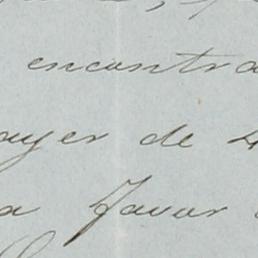 encontra
ayer de
a favor